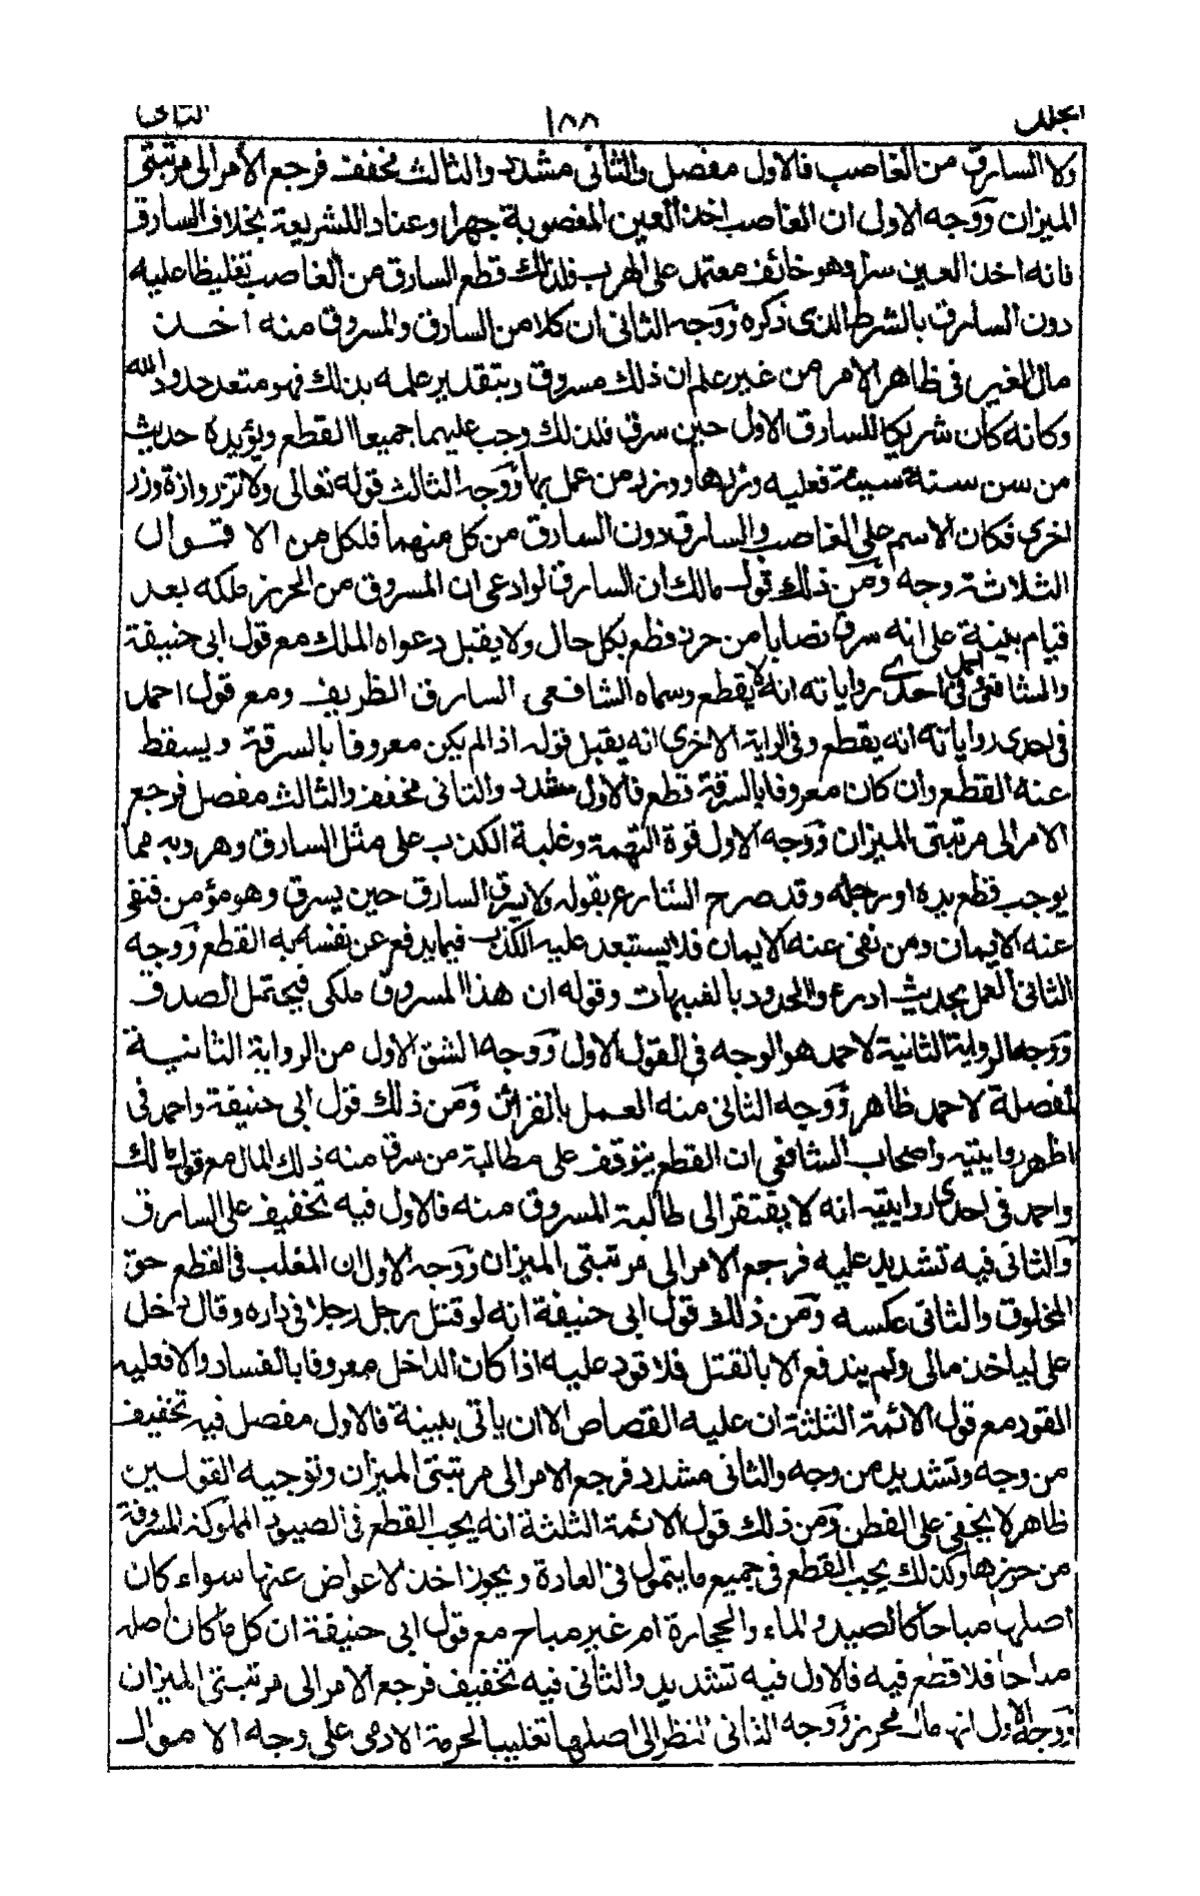 المجلد ١٨٨ الثاني
ولا السارق من الغاصب فالاول مفصل والثاني مشدد والثالث مخفف فرجع الأمر الى مرتبتي
الميزان ووجه الاول ان الغاصب اخذ العين المغصوبة جهرا وعنادا للشريعة بخلاف السارق
فانه اخذ العين سرا وهو خائف معتمد على الهرب فلذلك قطع السارق من الغاصب تغليظا عليه
دون السارق بالشرط الذي ذكره ووجه الثاني ان كلا من السارق والمسروق منه اخذ
مال الغير في ظاهر الامر من غير علم ان ذلك مسروق وبتقدير علمه بذلك فهو متعد حدود الله
وكانه كان شريكا للسارق الاول حين سرق فلذلك وجب عليهما جميعا القطع ويؤيده حديث
من سن سنة سيئة فعليه وزرها ووزر من عمل بها ووجه الثالث قوله تعالى ولا تزر وازرة وزر
اخرى فكان الاسم على الغاصب والسارق دون السارق من كل منهما فلكل من الا قوال
الثلاثة وجه ومن ذلك قول مالك ان السارق لو ادعى ان المسروق من الحرز ملكه بعد
قيام بينة على انه سرق نصابا من حرز قطع بكل حال ولا يقبل دعواه الملك مع قول ابي حنيفة
والشافعي واحمد في احدى رواياته انه لا يقطع وسماه الشافعي السارق الظريف ومع قول احمد
في احدى رواياته انه يقطع وفي الراية الاخرى انه يقبل قوله اذا لم يكن معروفا بالسرقة ويسقط
عنه القطع وان كان معروفا بالسرقة قطع فالاول مشدد والثاني مخفف والثالث مفصل فرجع
الامر الى مرتبتي الميزان ووجه الاول قوة التهمة وغلبة الكذب على مثل السارق وهروبه مما
يوجب قطع يده او رجله وقد صرح الشارع بقوله ولا يسرق السارق حين يسرق وهو مؤمن فنفى
عنه الايمان ومن نفى عنه الايمان فلا يستبعد عليه الكذب فيما يدفع عن نفسه به القطع ووجه
الثاني العمل بحديث ادرءوا الحدود بالشبهات وقوله ان هذا المسروق ملكي فيحتمل الصدق
ووجه الرواية الثانية لاحمد هو الوجه في القول الاول ووجه الشق الاول من الرواية الثانية
لفصلة لاحمد ظاهر ووجه الثاني منه العمل بالقرائن ومن ذلك قول ابي حنيفة واحمد في
اظهر روايتيه واصحاب الشافعي ان القطع يتوقف على مطالبة من سرق منه ذلك المال مع قول مالك
واحمد في احدى روايتيه انه لا يفتقر الى طالبة المسروق منه فالاول فيه تخفيف على السارق
والثاني فيه تشديد عليه فرجع الامر الى مرتبتي الميزان ووجه الاول ان المغلب في القطع حق
المخلوق والثاني عكسه ومن ذلك قول ابي حنيفة انه لو قتل رجل رجلا في داره وقال دخل
على لياخذ مالي ولم يندفع الا بالقتل فلا قود عليه اذا كان الداخل معروفا بالفساد والا فعليه
القود مع قول الائمة الثلثة ان عليه القصاص الا ان ياتي ببينة فالاول مفصل فيه تخفيف
من وجه وتشديد من وجه والثاني مشدد فرجع الامر الى مرتبتي الميزان وتوجيه القولين
ظاهر لا يخفى على الفطن ومن ذلك قول الائمة الثلثة انه يجب القطع في الصيود المملوكة المسروقة
من حرزها وكذلك يجب القطع في جميع ما يتمول في العادة ويجوز اخذ لا عواض عنها سواء كان
اصلها مباحا كالصيد والماء والحجارة ام غير مباح مع قول ابي حنيفة ان كل ما كان اصله
مباحا فلا قطع فيه فالاول فيه تشديد والثاني فيه تخفيف فرجع الامر الى مرتبتي الميزان
ووجه الاول انها مال محرز ووجه الثاني النظر الى اصلها تغليبا لحرمة الادمي على وجه الا موال